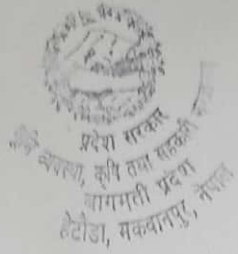 प्रदेश सरकार
भूमि व्यवस्था, कृषि तथा सहकारी मन्त्रालय
बागमती प्रदेश
हेटौंडा, मकवानपुर, नेपाल